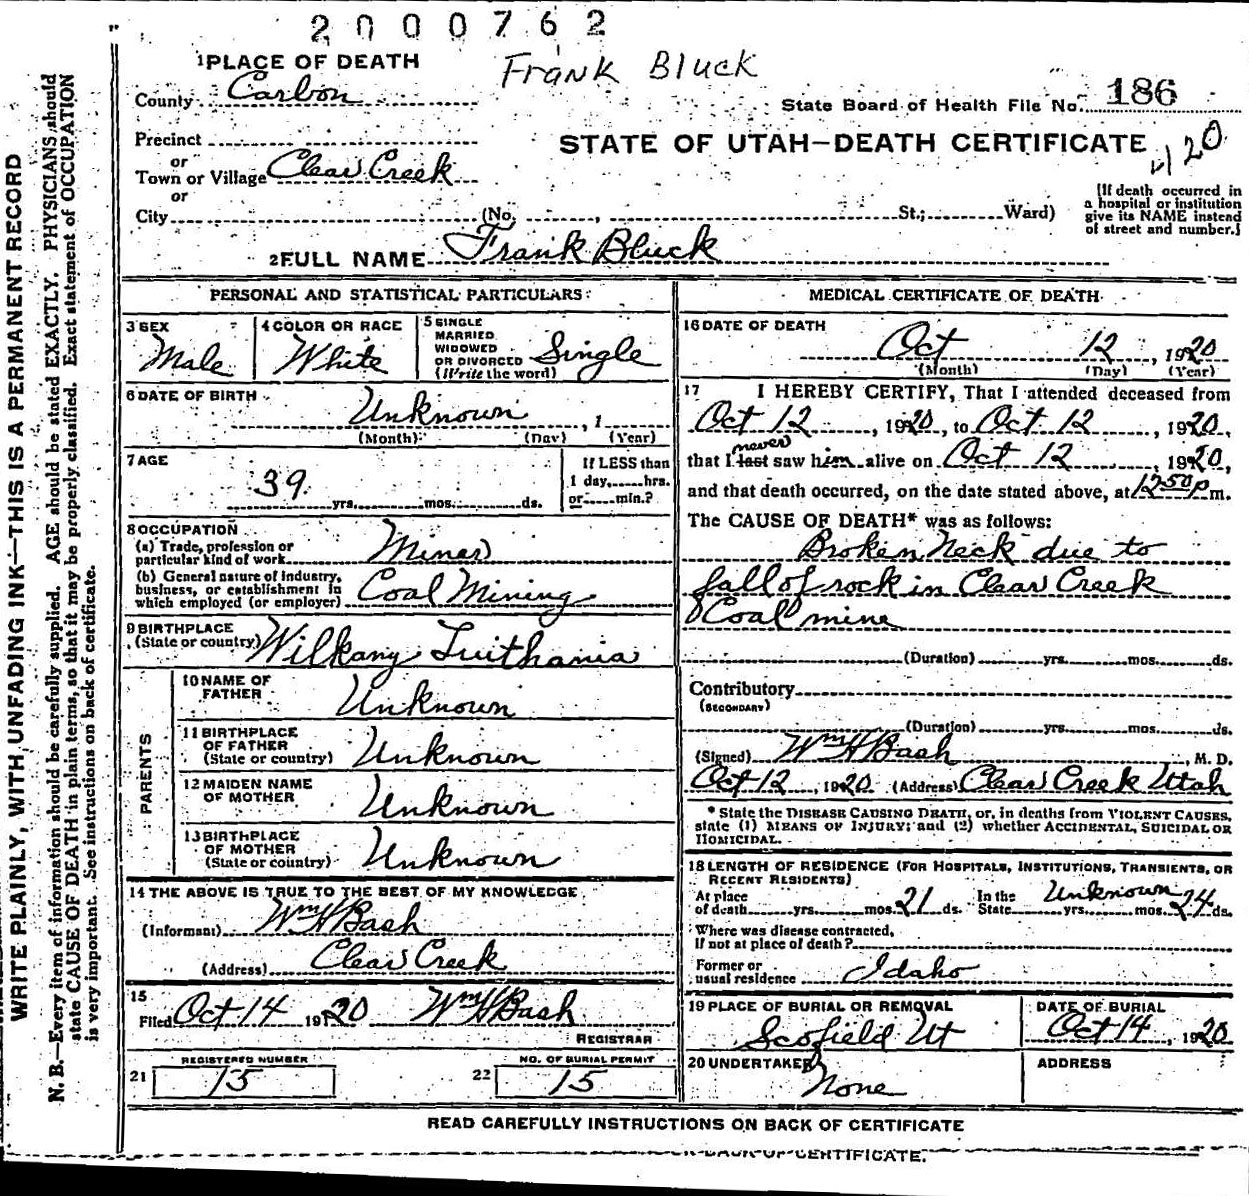 2000762
Frank Bluck
1 PLACE OF DEATH
County Carbon
State Board of Health File No. 186
Precinct
STATE OF UTAH—DEATH CERTIFICATE
120
or
Town or Village Clear Creek
or
City (No. , St.; Ward)
[If death occurred in
a hospital or institution
give its NAME instead
of street and number.]
2 FULL NAME Frank Bluck
PERSONAL AND STATISTICAL PARTICULARS
3 SEX
Male
4 COLOR OR RACE
White
5 SINGLE
MARRIED
WIDOWED
OR DIVORCED
(Write the word)
Single
6 DATE OF BIRTH
Unknown , 1
(Month) (Day) (Year)
7 AGE
39 yrs. mos. ds.
If LESS than
1 day, hrs.
or min.?
8 OCCUPATION
(a) Trade, profession or
particular kind of work Miner
(b) General nature of Industry,
business, or establishment in
which employed (or employer) Coal Mining
9 BIRTHPLACE
(State or country) Wilkany Luithania
PARENTS
10 NAME OF
FATHER Unknown
11 BIRTHPLACE
OF FATHER
(State or country) Unknown
12 MAIDEN NAME
OF MOTHER Unknown
13 BIRTHPLACE
OF MOTHER
(State or country) Unknown
14 THE ABOVE IS TRUE TO THE BEST OF MY KNOWLEDGE
(Informant) Wm H Bash
(Address) Clear Creek
15
Filed Oct 14 1920 Wm H Bash
REGISTRAR
REGISTERED NUMBER
21 15
NO. OF BURIAL PERMIT
22 15
MEDICAL CERTIFICATE OF DEATH
16 DATE OF DEATH
Oct 12, 1920
(Month) (Day) (Year)
17 I HEREBY CERTIFY, That I attended deceased from
Oct 12, 1920, to Oct 12, 1920,
never
that I last saw him alive on Oct 12, 1920,
and that death occurred, on the date stated above, at 12 50 p m.
The CAUSE OF DEATH* was as follows:
Broken Neck due to
fall of rock in Clear Creek
Coal mine
(Duration) yrs. mos. ds.
Contributory
(SECONDARY)
(Duration) yrs. mos. ds.
(Signed) Wm H Bash, M. D.
Oct 12, 1920 (Address) Clear Creek Utah
* State the DISEASE CAUSING DEATH, or, in deaths from VIOLENT CAUSES,
state (1) MEANS OF INJURY; and (2) whether ACCIDENTAL, SUICIDAL OR
HOMICIDAL.
18 LENGTH OF RESIDENCE (FOR HOSPITALS, INSTITUTIONS, TRANSIENTS, OR
RECENT RESIDENTS)
At place
of death yrs. mos. 21 ds.
In the
State Unknown yrs. mos. 24 ds.
Where was disease contracted,
if not at place of death?
Former or
usual residence Idaho
19 PLACE OF BURIAL OR REMOVAL
Scofield Ut
DATE OF BURIAL
Oct 14, 1920
20 UNDERTAKER
None
ADDRESS
READ CAREFULLY INSTRUCTIONS ON BACK OF CERTIFICATE
BACK OF CERTIFICATE.
WRITE PLAINLY, WITH UNFADING INK—THIS IS A PERMANENT RECORD
N. B.—Every item of information should be carefully supplied. AGE should be stated EXACTLY. PHYSICIANS should
state CAUSE OF DEATH in plain terms, so that it may be properly classified. Exact statement of OCCUPATION
is very important. See instructions on back of certificate.